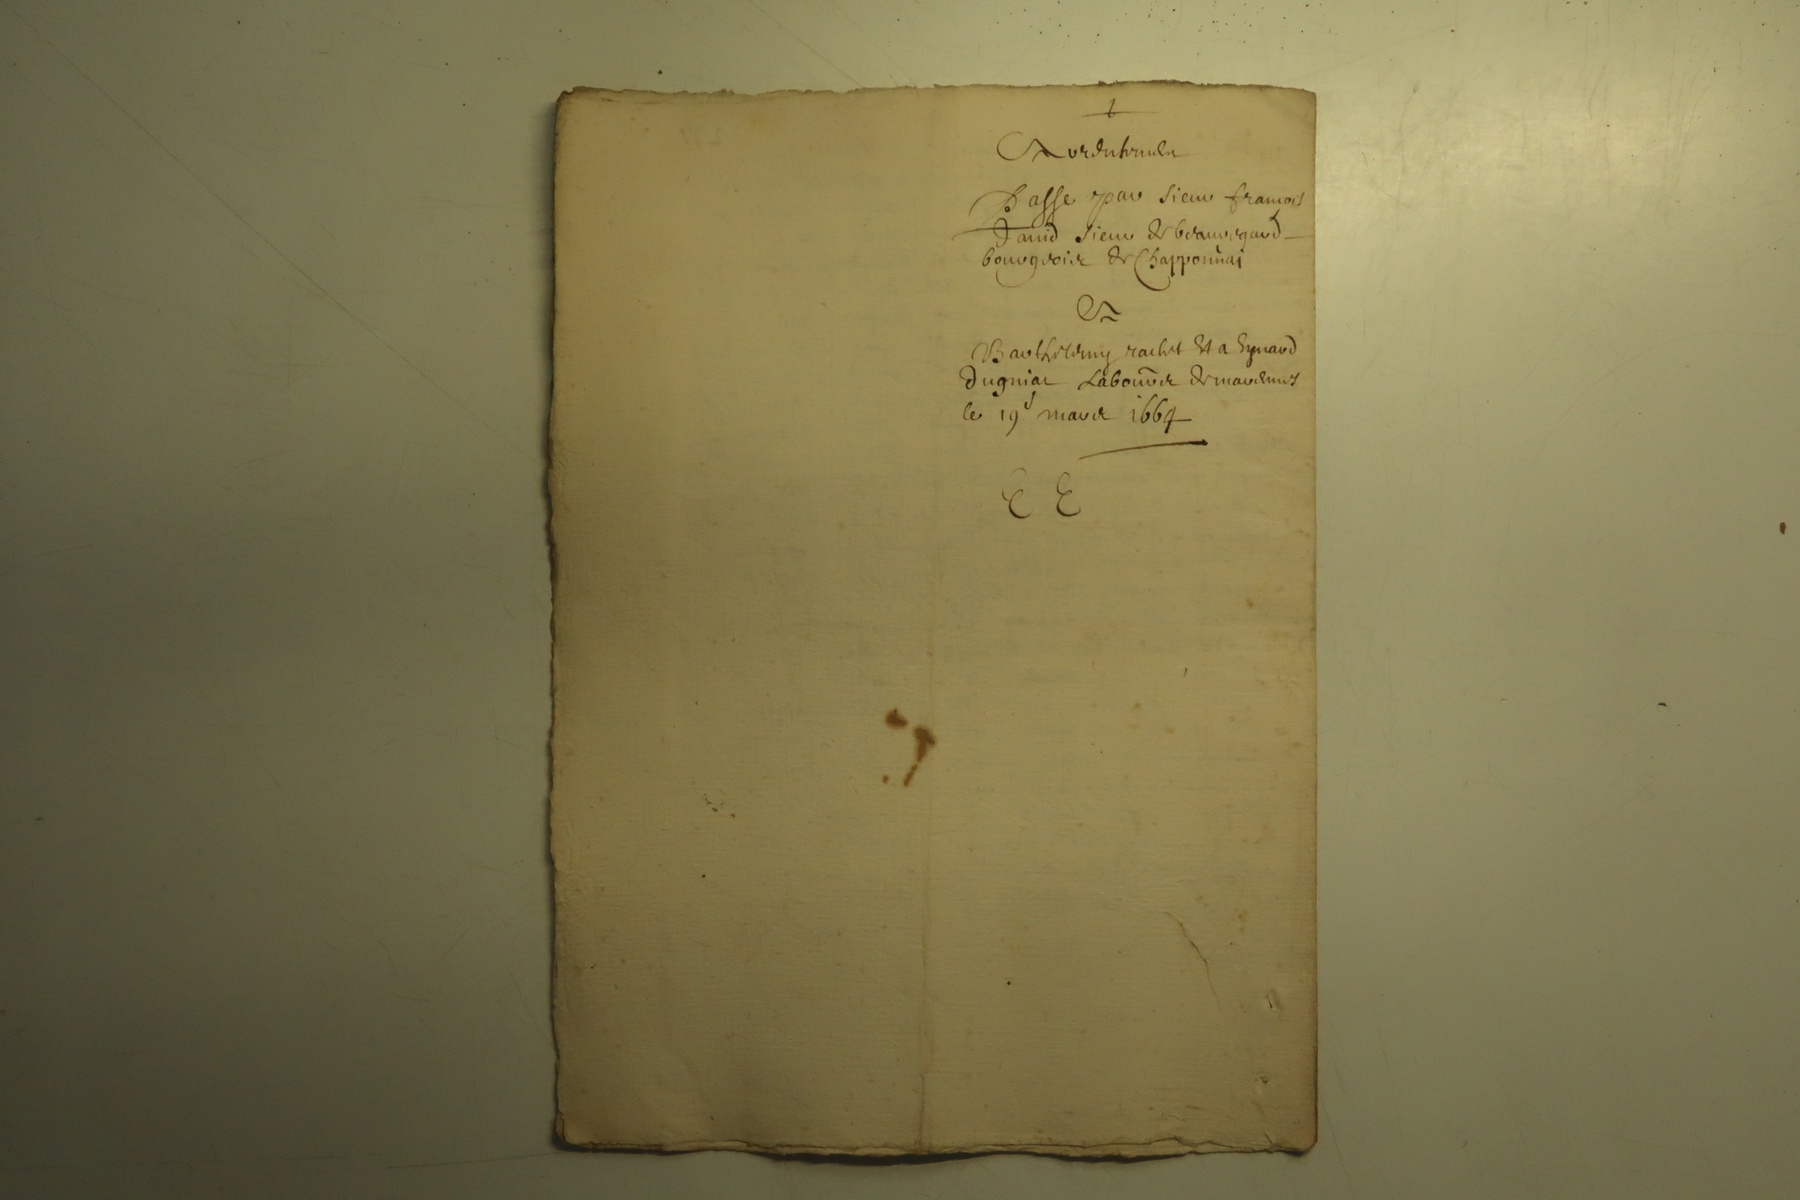 Passe par sieur françois
David sieur de beauregard
bourgeois de Chapponnai
A
Barthelemy rachet Et a Eymard
Dugniac Labour̃ de marennes
le 19e mars 1664
E E